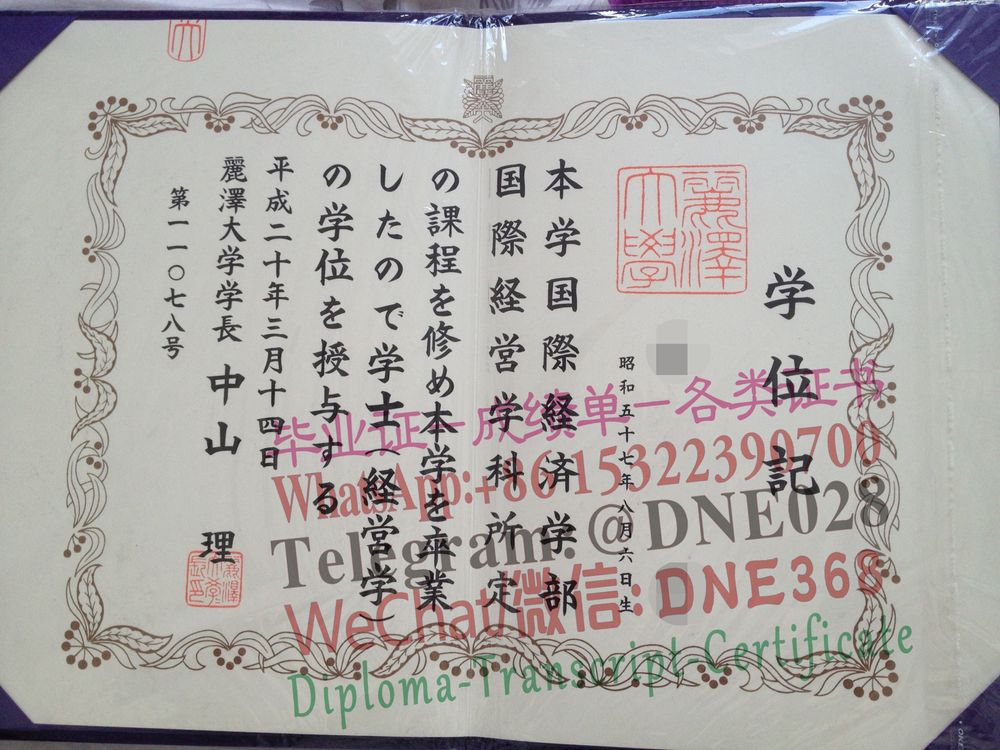 学位記
麗澤大學
昭和五十七年八月六日生
本学国際経済学部
国際経営学科所定
の課程を修め本学を卒業
したので学士(経営学)
の学位を授与する
平成二十年三月十四日
麗澤大学学長 中山 理
第一一〇七八号
毕业证-成绩单-各类证书
WhatsApp:+86 15322399700
Telegram: @DNE028
WeChat微信: DNE368
Diploma-Transcript-Certificate